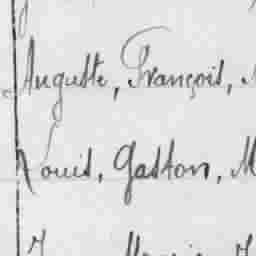 Auguste, François,
Louis, Gaston, M